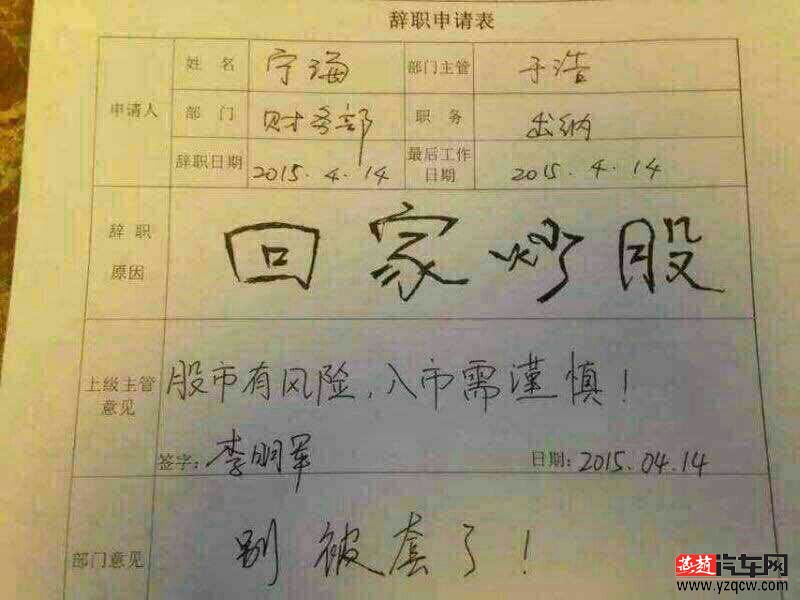 辞职申请表
申请人
姓名 宁海 部门主管 于浩
部门 财务部 职务 出纳
辞职日期 2015.4.14 最后工作日期 2015.4.14
辞职原因
回家炒股
上级主管意见
股市有风险,入市需谨慎!
签字:李明军 日期:2015.04.14
部门意见
别被套了!
芜湖汽车网
www.yzqcw.com